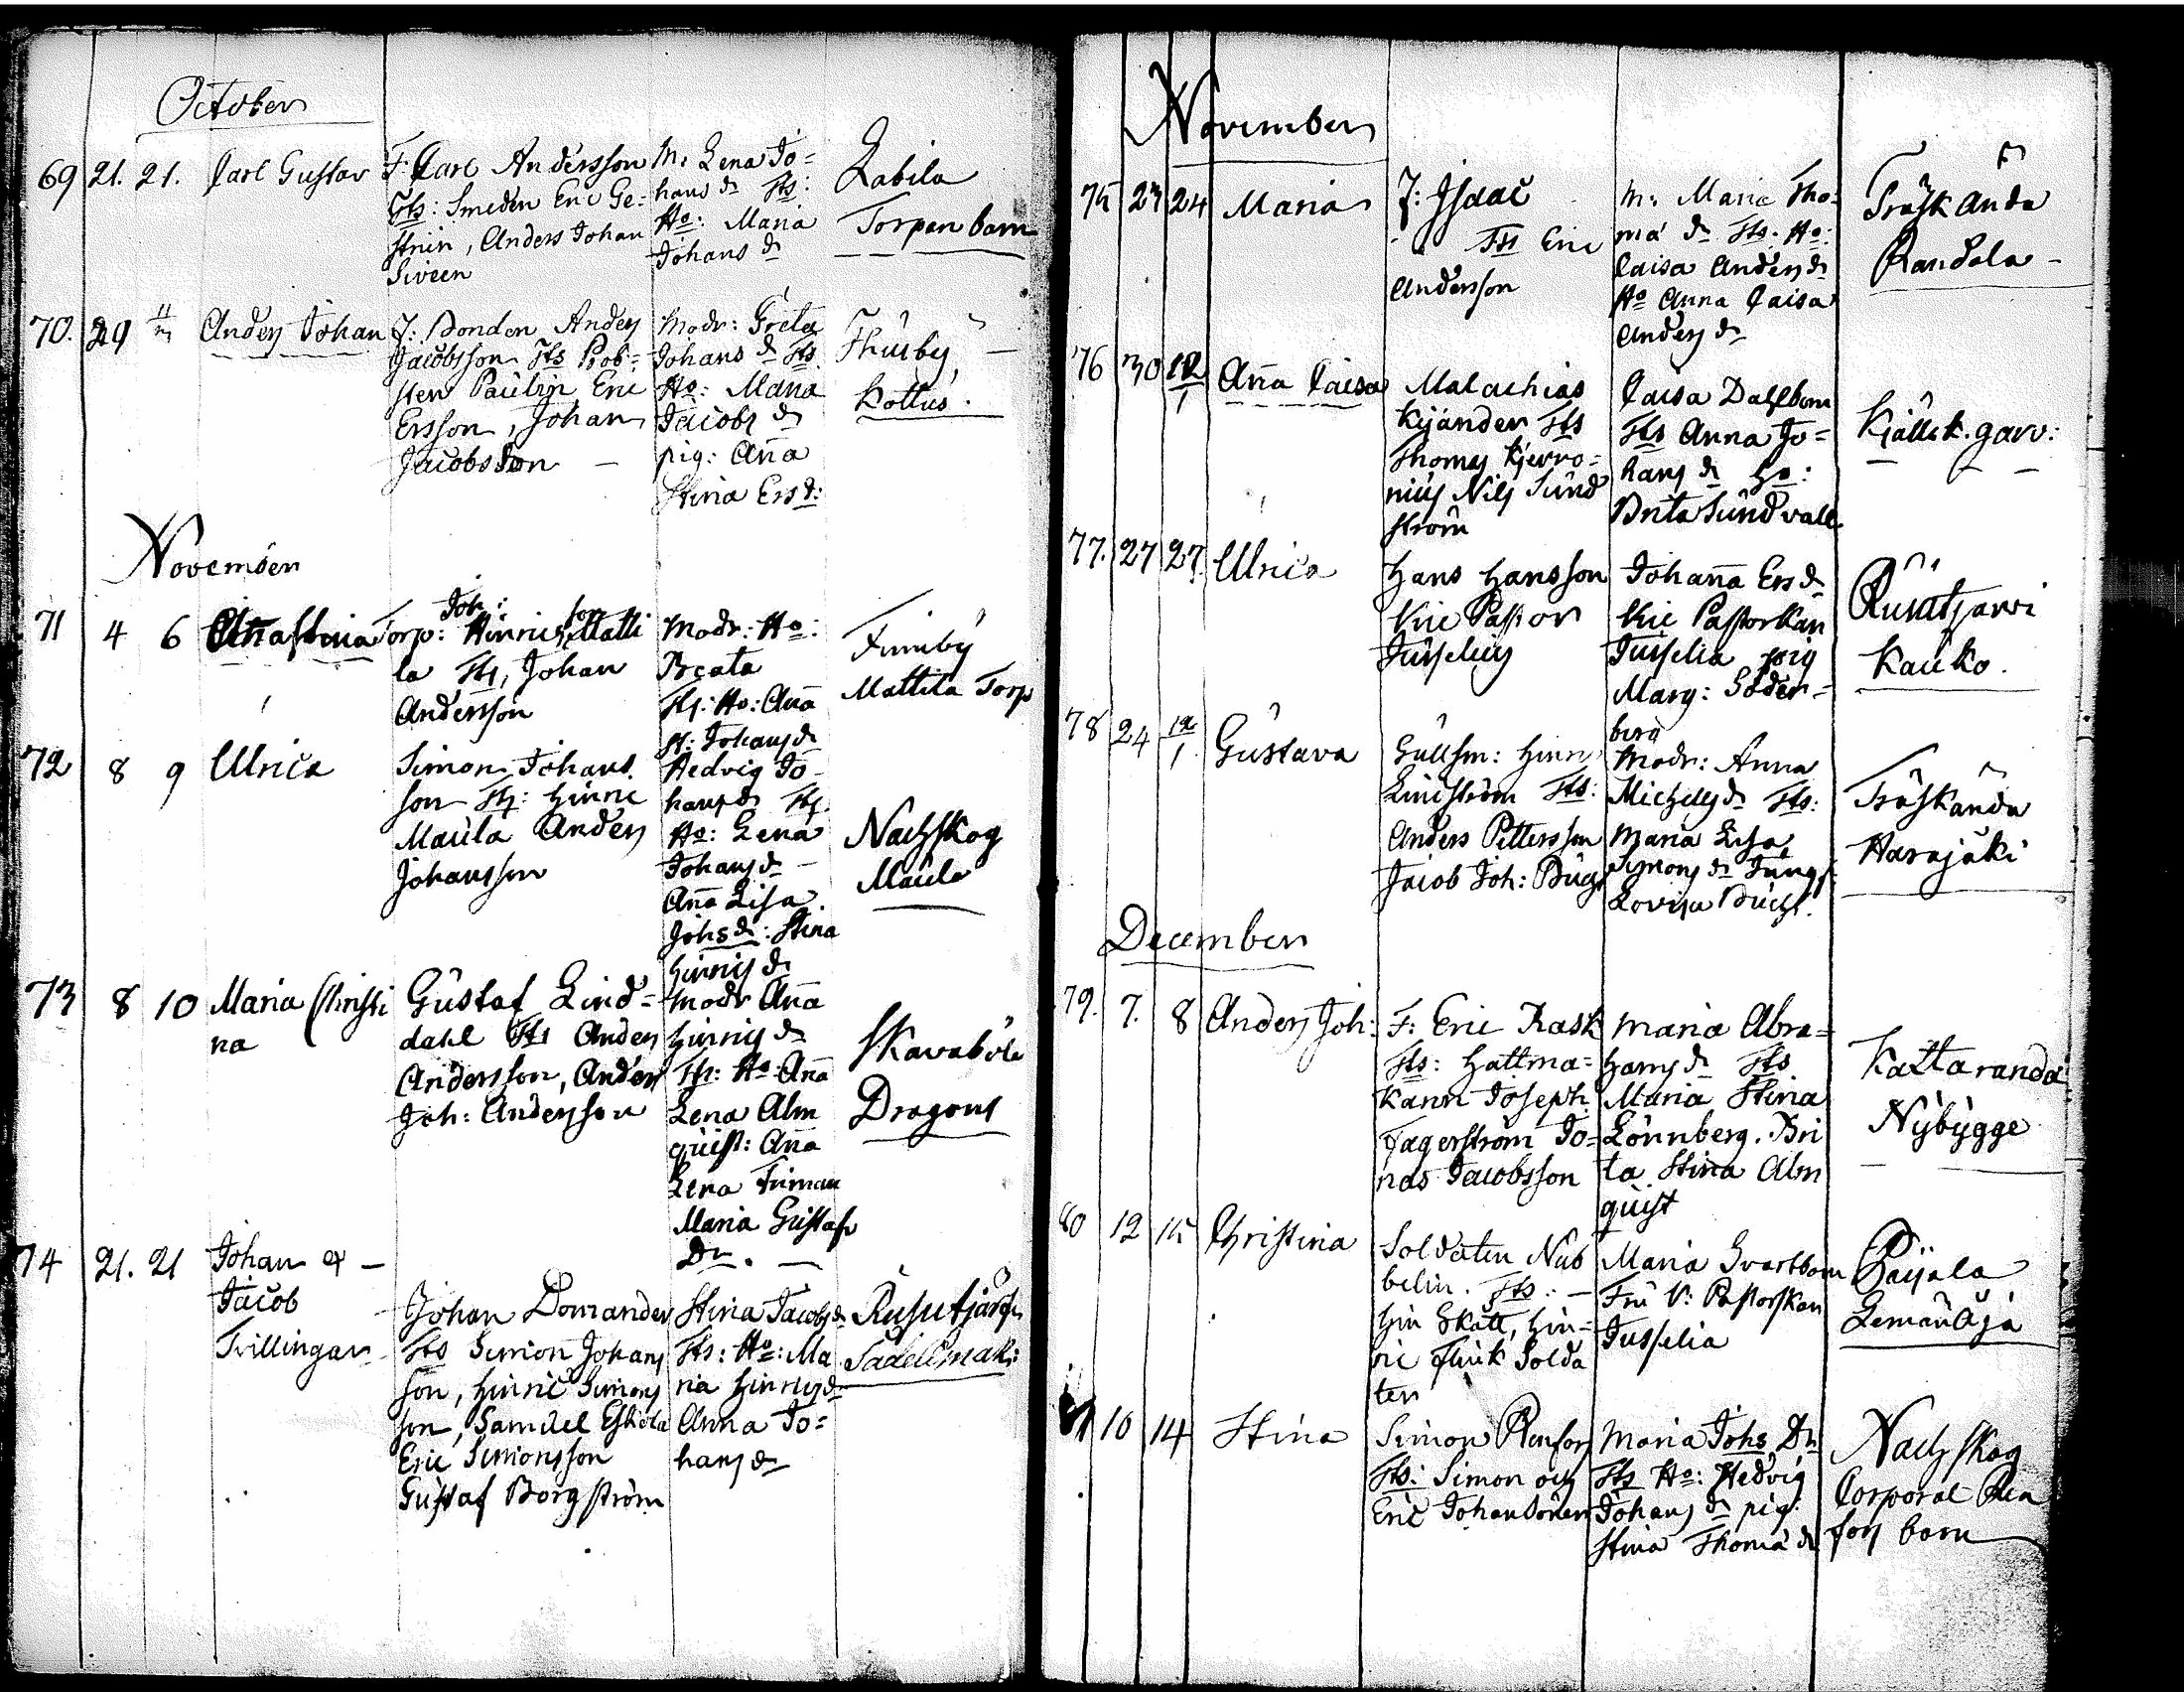 October
69 21. 21. Carl Gustav
F: Carl Andersson
Fts: Smeden Eric Ge-
Anders Johan
Siveen
M: Lena Jo=
hans dr Fts:
Ho: Maria
Johans dr
Labila
Torpare barn
70. 29 Anders Johan
F: Bonden Anders
Jacobsson Fts Prob-
sten Paulin, Eric
Ersson, Johan
Jacobsson
Modr: Greta
Johans dr Fts
Ho: Maria
Jacobs dr
pig: Anna
Stina Ers d:
Thusby
Kottus.
November
71 4 6
Torp: Joh: Hinrics son Matti
la Fts, Johan
Andersson
Modr: Ho:
Beata
Fts: Ho: Anna
St: Johans dr
Finnby
Mattila Torp
72 8 9 Ulrica
Simon Johans
son Fts: Hinric
Maula Anders
Johansson
Hedvig Jo-
hans dr Fts.
Ho: Lena
Johans dr
Anna Lisa
Johs dr: Stina
Hinrics dr
Nachskog
Maula
73 8 10 Maria Christi
na
Gustaf Lind=
dahl Fts Anders
Andersson, Anders
Joh: Andersson
Modr Anna
Hinrics dr
Fts: Ho: Anna
Lena Alm
quist: Anna
Lena Friman
Maria Gustafs
Dr.
Skavaböle
Dragons
74 21. 21 Johan &
Jacob
Tvillingar
Johan Domander
Fts Simon Johans
son, Hinric Simons
son, Samuel Eskola
Eric Simonsson
Gustaf Borgström
Stina Jacobs dr
Fts: Ho: Ma
ria Hinrics dr
Anna Jo=
hans dr
Rusutjärfvi
Sadelimäki
November
75 23 24 Maria
F: Isaac
Fts Eric
Andersson
M: Maria Tho-
mæ dr Fts: Ho:
Caisa Anders dr
Ho Anna Caisa
Anders dr
Träskända
Randala
76 30 12/1 Anna Caisa
Malachias
Kijander Fts
Thomas
Nils Sund
ström
Caisa Dahlbom
Fts Anna Jo=
hans dr Ho:
Brita Sundvall
Kjällsk. garv:
77. 27 27. Ulrica
Hans Hansson
Vice Pastor
Jusselius
Johanna Ers dr
Vice Pastorskan
Jusselia pig
Marg: Söder=
berg
Rusutjärvi
Kauko.
78 24 12/1 Gustava
Gullsm: Hinr
Lindström Fts:
Anders Pettersson
Jacob Joh: Bucht
Modr: Anna
Michels dr Fts:
Maria Lisa
Simons dr Jungf
Lovisa Bucht.
Träskända
Harajäki
December
79. 7. 8 Anders Joh:
F: Eric Rask
Fts: Hattma=
karn Joseph
Fagerström Jo=
nas Jacobsson
Maria Abra=
hams dr Fts
Maria Stina
Lönnberg. Bri
ta Stina Alm
quist
Kattaranda
Nybygge
80 12 15 Christina
Soldaten Nub
belin. Fts:
Hin Skått, Hin=
ric Flink Solda
ter
Maria Svartbom
Fru V: Pastorskan
Jusselia
Paijala
Lemanäjä
81 10 14 Stina
Simon Renfors
Fts: Simon och
Eric Johanssöner
Maria Johs Dr
Fts Ho: Hedvig
Johans dr pig:
Stina Thomæ dr
Nachskog
Corporal Ren
fors barn